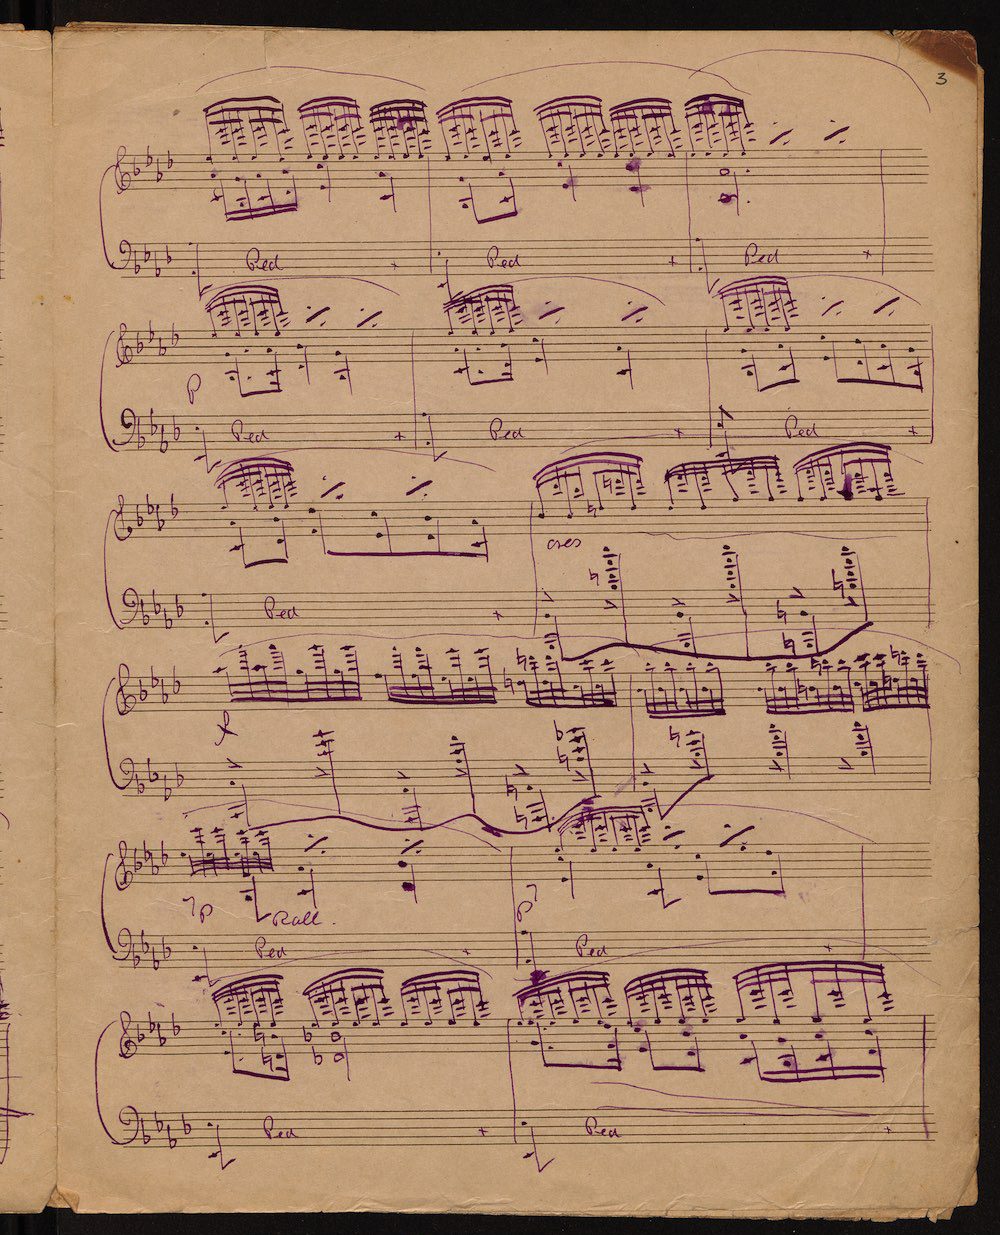 3
Ped Ped Ped
P
Ped Ped Ped
cres
Ped
P Roll.
P
Ped Ped
Ped Ped